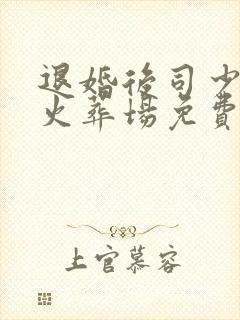 退婚後司少
火葬場免費
上官慕容